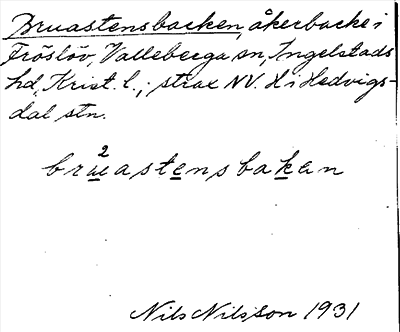 Bruastensbacken, åkerbacke i
Fröslöv, Valleberga sn, Ingelstads
hd, Krist. l.; strax NV. H i Hedvigs-
dal stn.
2
bruastensbakan
Nils Nilsson 1931